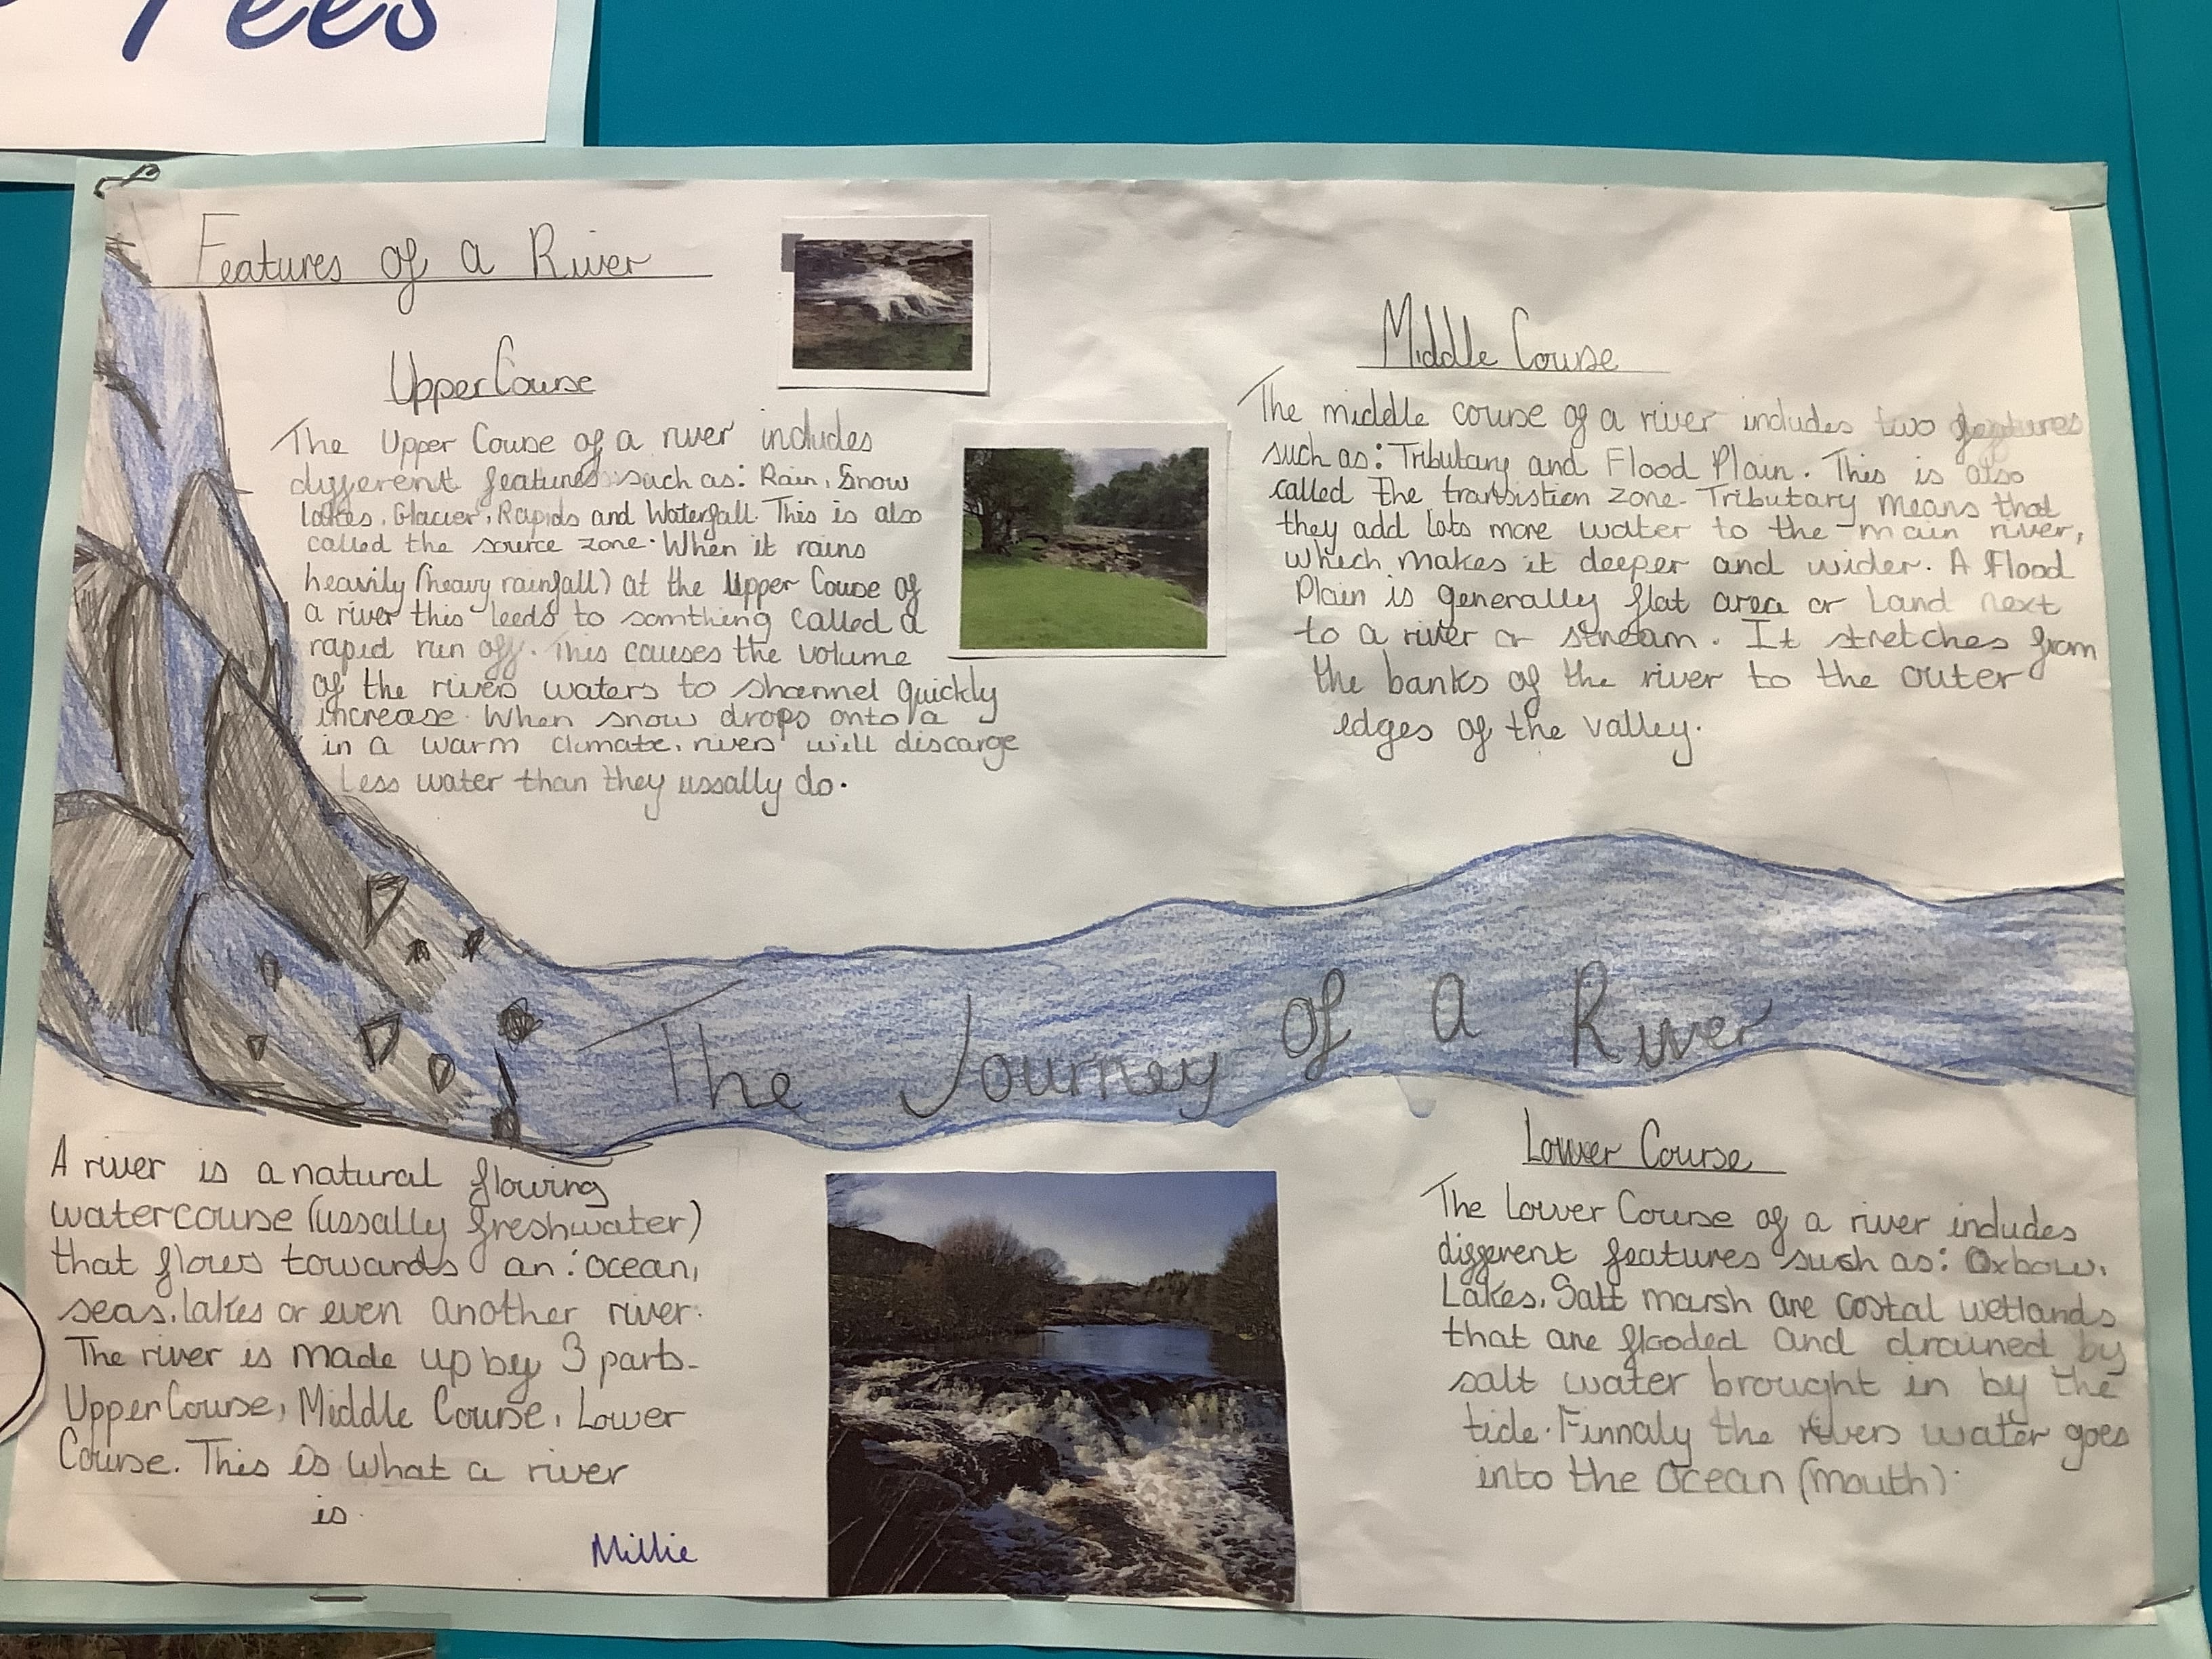 Tees
Features of a River
Upper Course
The Upper Couse of a river includes
different features such as: Rain, Snow
lakes, Glacier, Rapids and Waterfall. This is also
called the source zone. When it rains
heavily (heavy rainfall) at the Upper Couse of
a river this leeds to somthing called a
rapid run off. This causes the volume
of the rivers waters to shannel quickly
increase. When snow drops onto a
in a warm climate, rivers will discarge
Less water than they ussally do.
Middle Course
The middle course of a river includes two features
such as: Tributary and Flood Plain. This is also
called The transistion zone. Tributary means that
they add lots more water to the main river,
which makes it deeper and wider. A Flood
Plain is generally flat area or Land next
to a river or stream. It stretches from
the banks of the river to the outer
edges of the valley.
The Journey of A River
A river is a natural flowing
watercourse (ussally freshwater)
that flows towards an: ocean,
seas, lakes or even another river.
The river is made up by 3 parts-
Upper Course, Middle Course, Lower
Course. This is What a river
is.
Millie
Lower Course
The Lower Course of a river includes
different features such as: Oxbow,
Lakes, Salt marsh are costal wetlands
that are flooded and drained by
salt water brought in by the
tide. Finnaly the rivers water goes
into the Ocean (mouth).